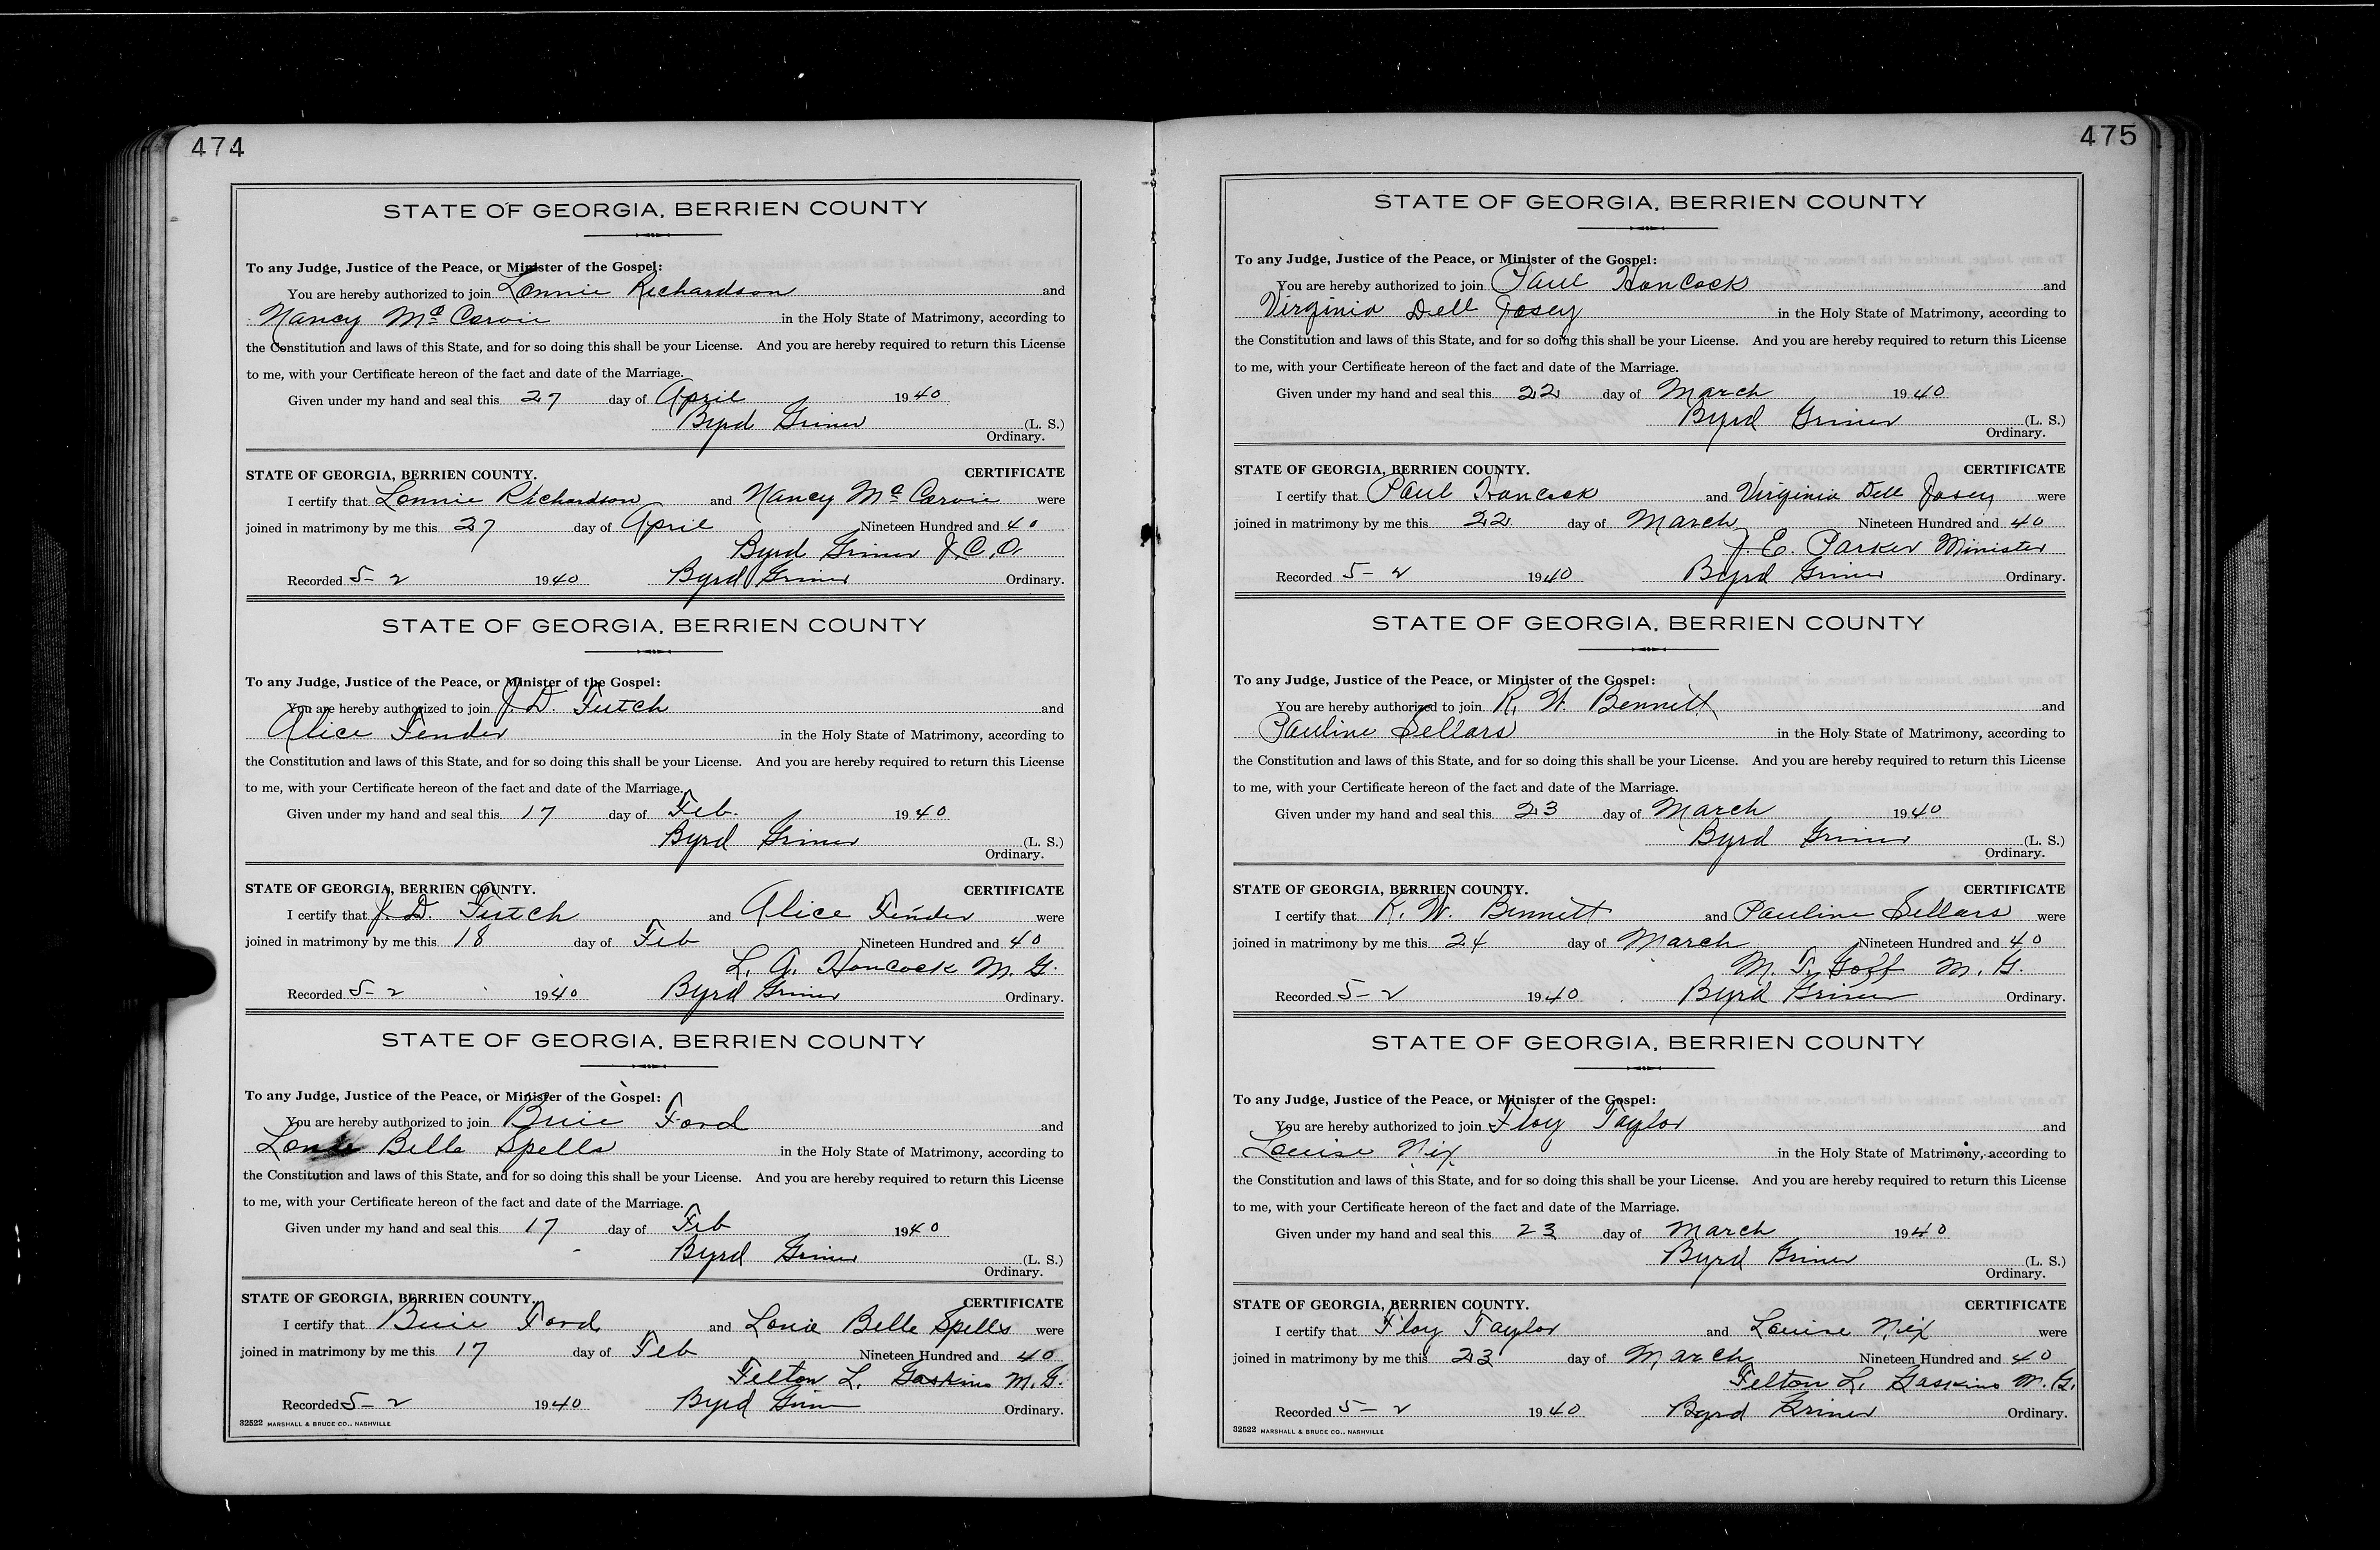 474
STATE OF GEORGIA, BERRIEN COUNTY
To any Judge, Justice of the Peace, or Minister of the Gospel:
You are hereby authorized to join Lonnie Richardson and
Nancy Mc Corvie in the Holy State of Matrimony, according to
the Constitution and laws of this State, and for so doing this shall be your License. And you are hereby required to return this License
to me, with your Certificate hereon of the fact and date of the Marriage.
Given under my hand and seal this 27 day of April 1940
Byrd Griner (L. S.)
Ordinary.
STATE OF GEORGIA, BERRIEN COUNTY. CERTIFICATE
I certify that Lonnie Richardson and Nancy Mc Corvie were
joined in matrimony by me this 27 day of April Nineteen Hundred and 40
Byrd Griner J.C.O.
Recorded 5-2 1940 Byrd Griner Ordinary.
STATE OF GEORGIA, BERRIEN COUNTY
To any Judge, Justice of the Peace, or Minister of the Gospel:
You are hereby authorized to join J. D. Futch and
Alice Fender in the Holy State of Matrimony, according to
the Constitution and laws of this State, and for so doing this shall be your License. And you are hereby required to return this License
to me, with your Certificate hereon of the fact and date of the Marriage.
Given under my hand and seal this 17 day of Feb. 1940
Byrd Griner (L. S.)
Ordinary.
STATE OF GEORGIA, BERRIEN COUNTY. CERTIFICATE
I certify that J. D. Futch and Alice Fender were
joined in matrimony by me this 18 day of Feb Nineteen Hundred and 40
L. A. Hancock M. G.
Recorded 5-2 1940 Byrd Griner Ordinary.
STATE OF GEORGIA, BERRIEN COUNTY
To any Judge, Justice of the Peace, or Minister of the Gospel:
You are hereby authorized to join Ford and
Belle Spells in the Holy State of Matrimony, according to
the Constitution and laws of this State, and for so doing this shall be your License. And you are hereby required to return this License
to me, with your Certificate hereon of the fact and date of the Marriage.
Given under my hand and seal this 17 day of Feb 1940
Byrd Griner (L. S.)
Ordinary.
STATE OF GEORGIA, BERRIEN COUNTY. CERTIFICATE
I certify that Ford and Belle Spells were
joined in matrimony by me this 17 day of Feb Nineteen Hundred and 40
Felton L. Gaskins M. G.
Recorded 5-2 1940 Byrd Griner Ordinary.
32522 MARSHALL & BRUCE CO., NASHVILLE
475
STATE OF GEORGIA, BERRIEN COUNTY
To any Judge, Justice of the Peace, or Minister of the Gospel:
You are hereby authorized to join Paul Hancock and
Virginia Dell Josey in the Holy State of Matrimony, according to
the Constitution and laws of this State, and for so doing this shall be your License. And you are hereby required to return this License
to me, with your Certificate hereon of the fact and date of the Marriage.
Given under my hand and seal this 22 day of March 1940
Byrd Griner (L. S.)
Ordinary.
STATE OF GEORGIA, BERRIEN COUNTY. CERTIFICATE
I certify that Paul Hancock and Virginia Dell Josey were
joined in matrimony by me this 22 day of March Nineteen Hundred and 40
J. E. Parker Minister
Recorded 5-2 1940 Byrd Griner Ordinary.
STATE OF GEORGIA, BERRIEN COUNTY
To any Judge, Justice of the Peace, or Minister of the Gospel:
You are hereby authorized to join R. W. Bennett and
Pauline Sellars in the Holy State of Matrimony, according to
the Constitution and laws of this State, and for so doing this shall be your License. And you are hereby required to return this License
to me, with your Certificate hereon of the fact and date of the Marriage.
Given under my hand and seal this 23 day of March 1940
Byrd Griner (L. S.)
Ordinary.
STATE OF GEORGIA, BERRIEN COUNTY. CERTIFICATE
I certify that R. W. Bennett and Pauline Sellars were
joined in matrimony by me this 24 day of March Nineteen Hundred and 40
M. T. Goff M. G.
Recorded 5-2 1940 Byrd Griner Ordinary.
STATE OF GEORGIA, BERRIEN COUNTY
To any Judge, Justice of the Peace, or Minister of the Gospel:
You are hereby authorized to join Floy Taylor and
Louise Nix in the Holy State of Matrimony, according to
the Constitution and laws of this State, and for so doing this shall be your License. And you are hereby required to return this License
to me, with your Certificate hereon of the fact and date of the Marriage.
Given under my hand and seal this 23 day of March 1940
Byrd Griner (L. S.)
Ordinary.
STATE OF GEORGIA, BERRIEN COUNTY. CERTIFICATE
I certify that Floy Taylor and Louise Nix were
joined in matrimony by me this 23 day of March Nineteen Hundred and 40
Felton L. Gaskins M. G.
Recorded 5-2 1940 Byrd Griner Ordinary.
32522 MARSHALL & BRUCE CO., NASHVILLE